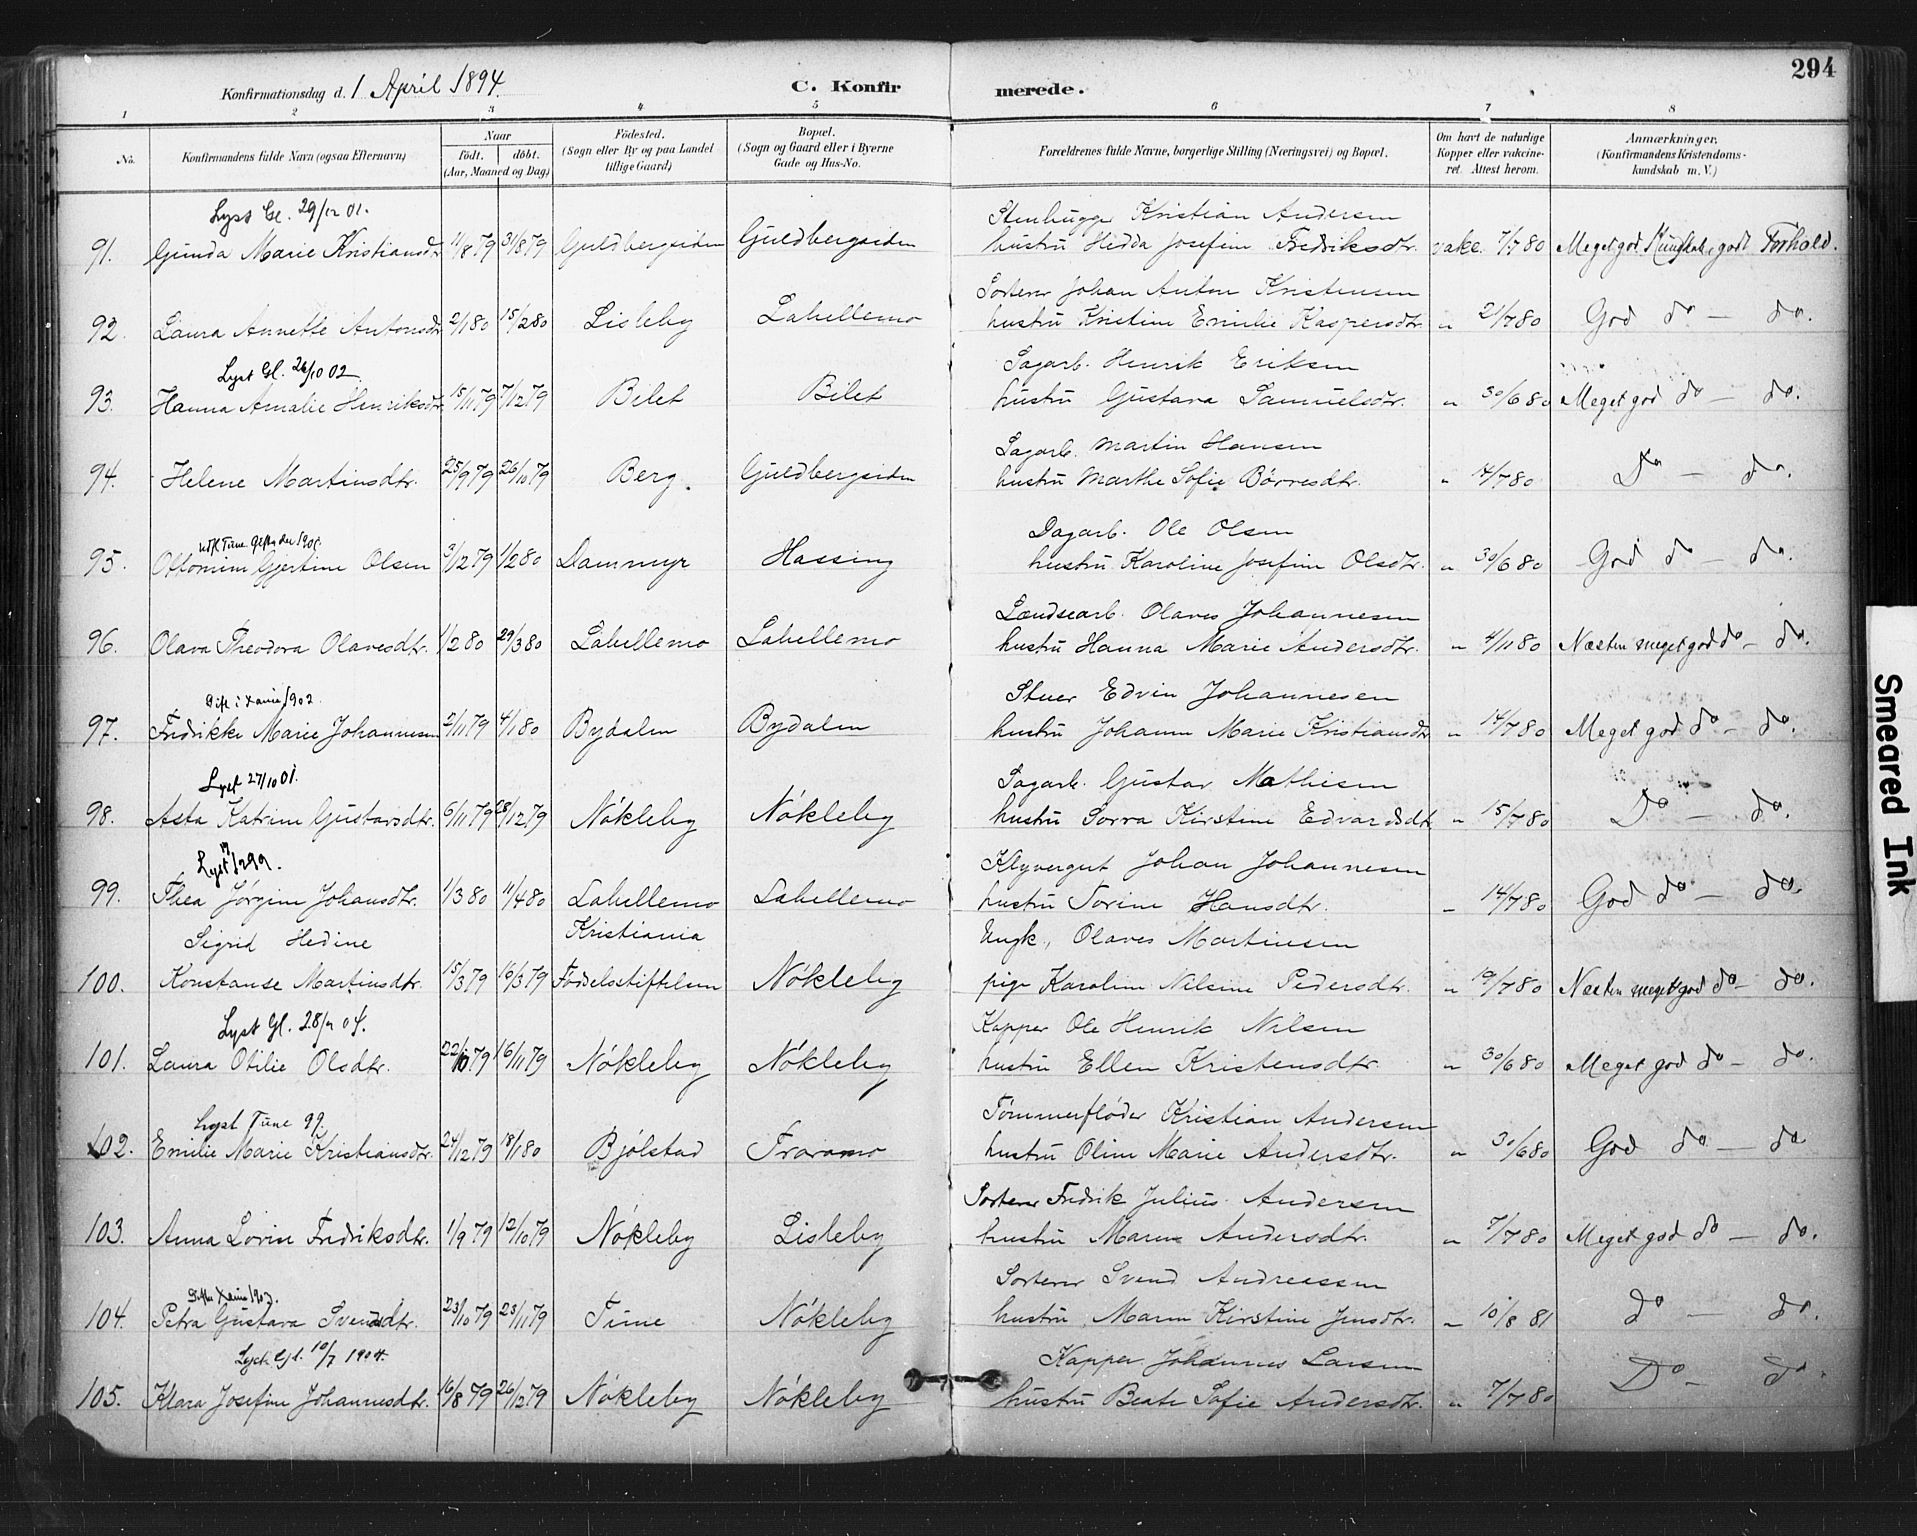 294
Konfirmationsdag d. 1 April 1894. C. Konfirmerede.
1 2 3 4 5 6 7 8
No. Konfirmandens fulde Navn (ogsaa Efternavn) Naar født. døbt. (Aar, Maaned og Dag) Fødested. (Sogn eller By og paa Landet tillige Gaard) Bopæl. (Sogn og Gaard eller i Byerne Gade og Hus-No. Forældrenes fulde Navne, borgerlige Stilling (Næringsvei) og Bopæl. Om havt de naturlige Kopper eller vakcineret. Attest herom. Anmærkninger, (Konfirmandens Kristendomskundskab m. V.)
Lyst Gl. 29/12 01. Stenhugger Kristian Andersen
91. Gunda Marie Kristiansdtr 11/8 79 31/8 79 Guldbergsiden Guldbergsiden hustru Hedda Josefine Fredriksdtr. vakc. 7/7 80 Meget god Kundskab, godt Forhold.
Sorterer Johan Anton Kristensen
92. Laura Annette Antonsdtr 2/1 80 15/2 80 Lisleby Labellemo hustru Kristine Emilie Kaspersdtr. " 21/7 80 God do — do.
Lyst Gl. 26/10 02 Sagarb. Henrik Eriksen
93. Hanna Amalie Henriksdtr 15/11 79 7/12 79 Bilet Bilet hustru Gustava Samuelsdtr. " 30/6 80 Meget god do — do.
Sagarb. Martin Hansen
94. Helene Martinsdtr. 25/9 79 26/10 79 Berg. Guldbergsiden hustru Marthe Sofie Børresdtr. " 14/7 80 Do — do.
Tune 190 Dagarb. Ole Olsen
95. Ottomine Gjertine Olsen 3/12 79 1/2 80 Dammyr Hassing hustru Karoline Josefine Olsdtr. " 30/6 80 God do — do.
Lændsearb. Olaves Johannesen
96. Olava Theodora Olavesdtr. 1/2 80 29/3 80 Labellemo Labellemo hustru Hanna Marie Andersdtr. " 4/11 80 Næsten meget god do — do.
Gift i 1902. Stuer Edvin Johannesen
97. Fredrikke Marie Johannesen 2/11 79 4/1 80 Bydalen Bydalen hustru Johanne Marie Kristiansdtr " 14/7 80 Meget god do — do.
Lyst 27/10 01. Sagarb. Gustav Mathisen
98. Asta Katrine Gustavsdtr. 6/11 79 28/12 79 Nókleby Nókleby hustru Kirstine Edvardsdtr " 15/7 80 Do — do.
Lyst Klyvergut Johan Johannesen
99. Thea Jørgine Johansdtr. 1/3 80 11/4 80 Labellemo Labellemo hustru Torine Hansdtr. " 14/7 80 God do — do.
Sigrid Hedine Kristiania Ungk., Olaves Martinsen
100. Konstanse Martinsdtr. 15/3 79 19/3 79 Fødselsstiftelsen Nókleby pige Karoline Nilsine Pedersdtr. " 19/7 80 Næsten meget god do — do.
Lyst Gl. 04. Kapper Ole Henrik Nilsen
101. Laura Otilie Olsdtr. 22/10 79 16/11 79 Nókleby Nókleby hustru Ellen Kristensdtr. " 30/6 80 Meget god do — do.
Lyst Tune 99. Tømmerfløder Kristian Andersen
102. Emilie Marie Kristiansdtr. 24/12 79 18/1 80 Bjølstad Traramo hustru Oline Marie Andersdtr. " 30/6 80 God do — do
Sorterer Fredrik Julius Andersen
103. Anna Lovise Fredriksdtr. 1/9 79 12/10 79 Nókleby Lisleby hustru Maren Andersdtr. " 7/7 80 Meget god do — do.
Sorterer Svend Andreassen
104. Petra Gustava Svendsdtr. 23/10 79 23/11 79 Tune Nókleby hustru Maren Kirstine Jensdtr. " 10/8 81 do — do.
Lyst Gl. 10/7 1904. Kapper Johannes Larsen
105. Klara Josefine Johannesdtr. 16/8 79 26/12 79 Nókleby Nókleby hustru Beate Sofie Andersdtr. " 7/7 80 Do — do.
Smeared Ink